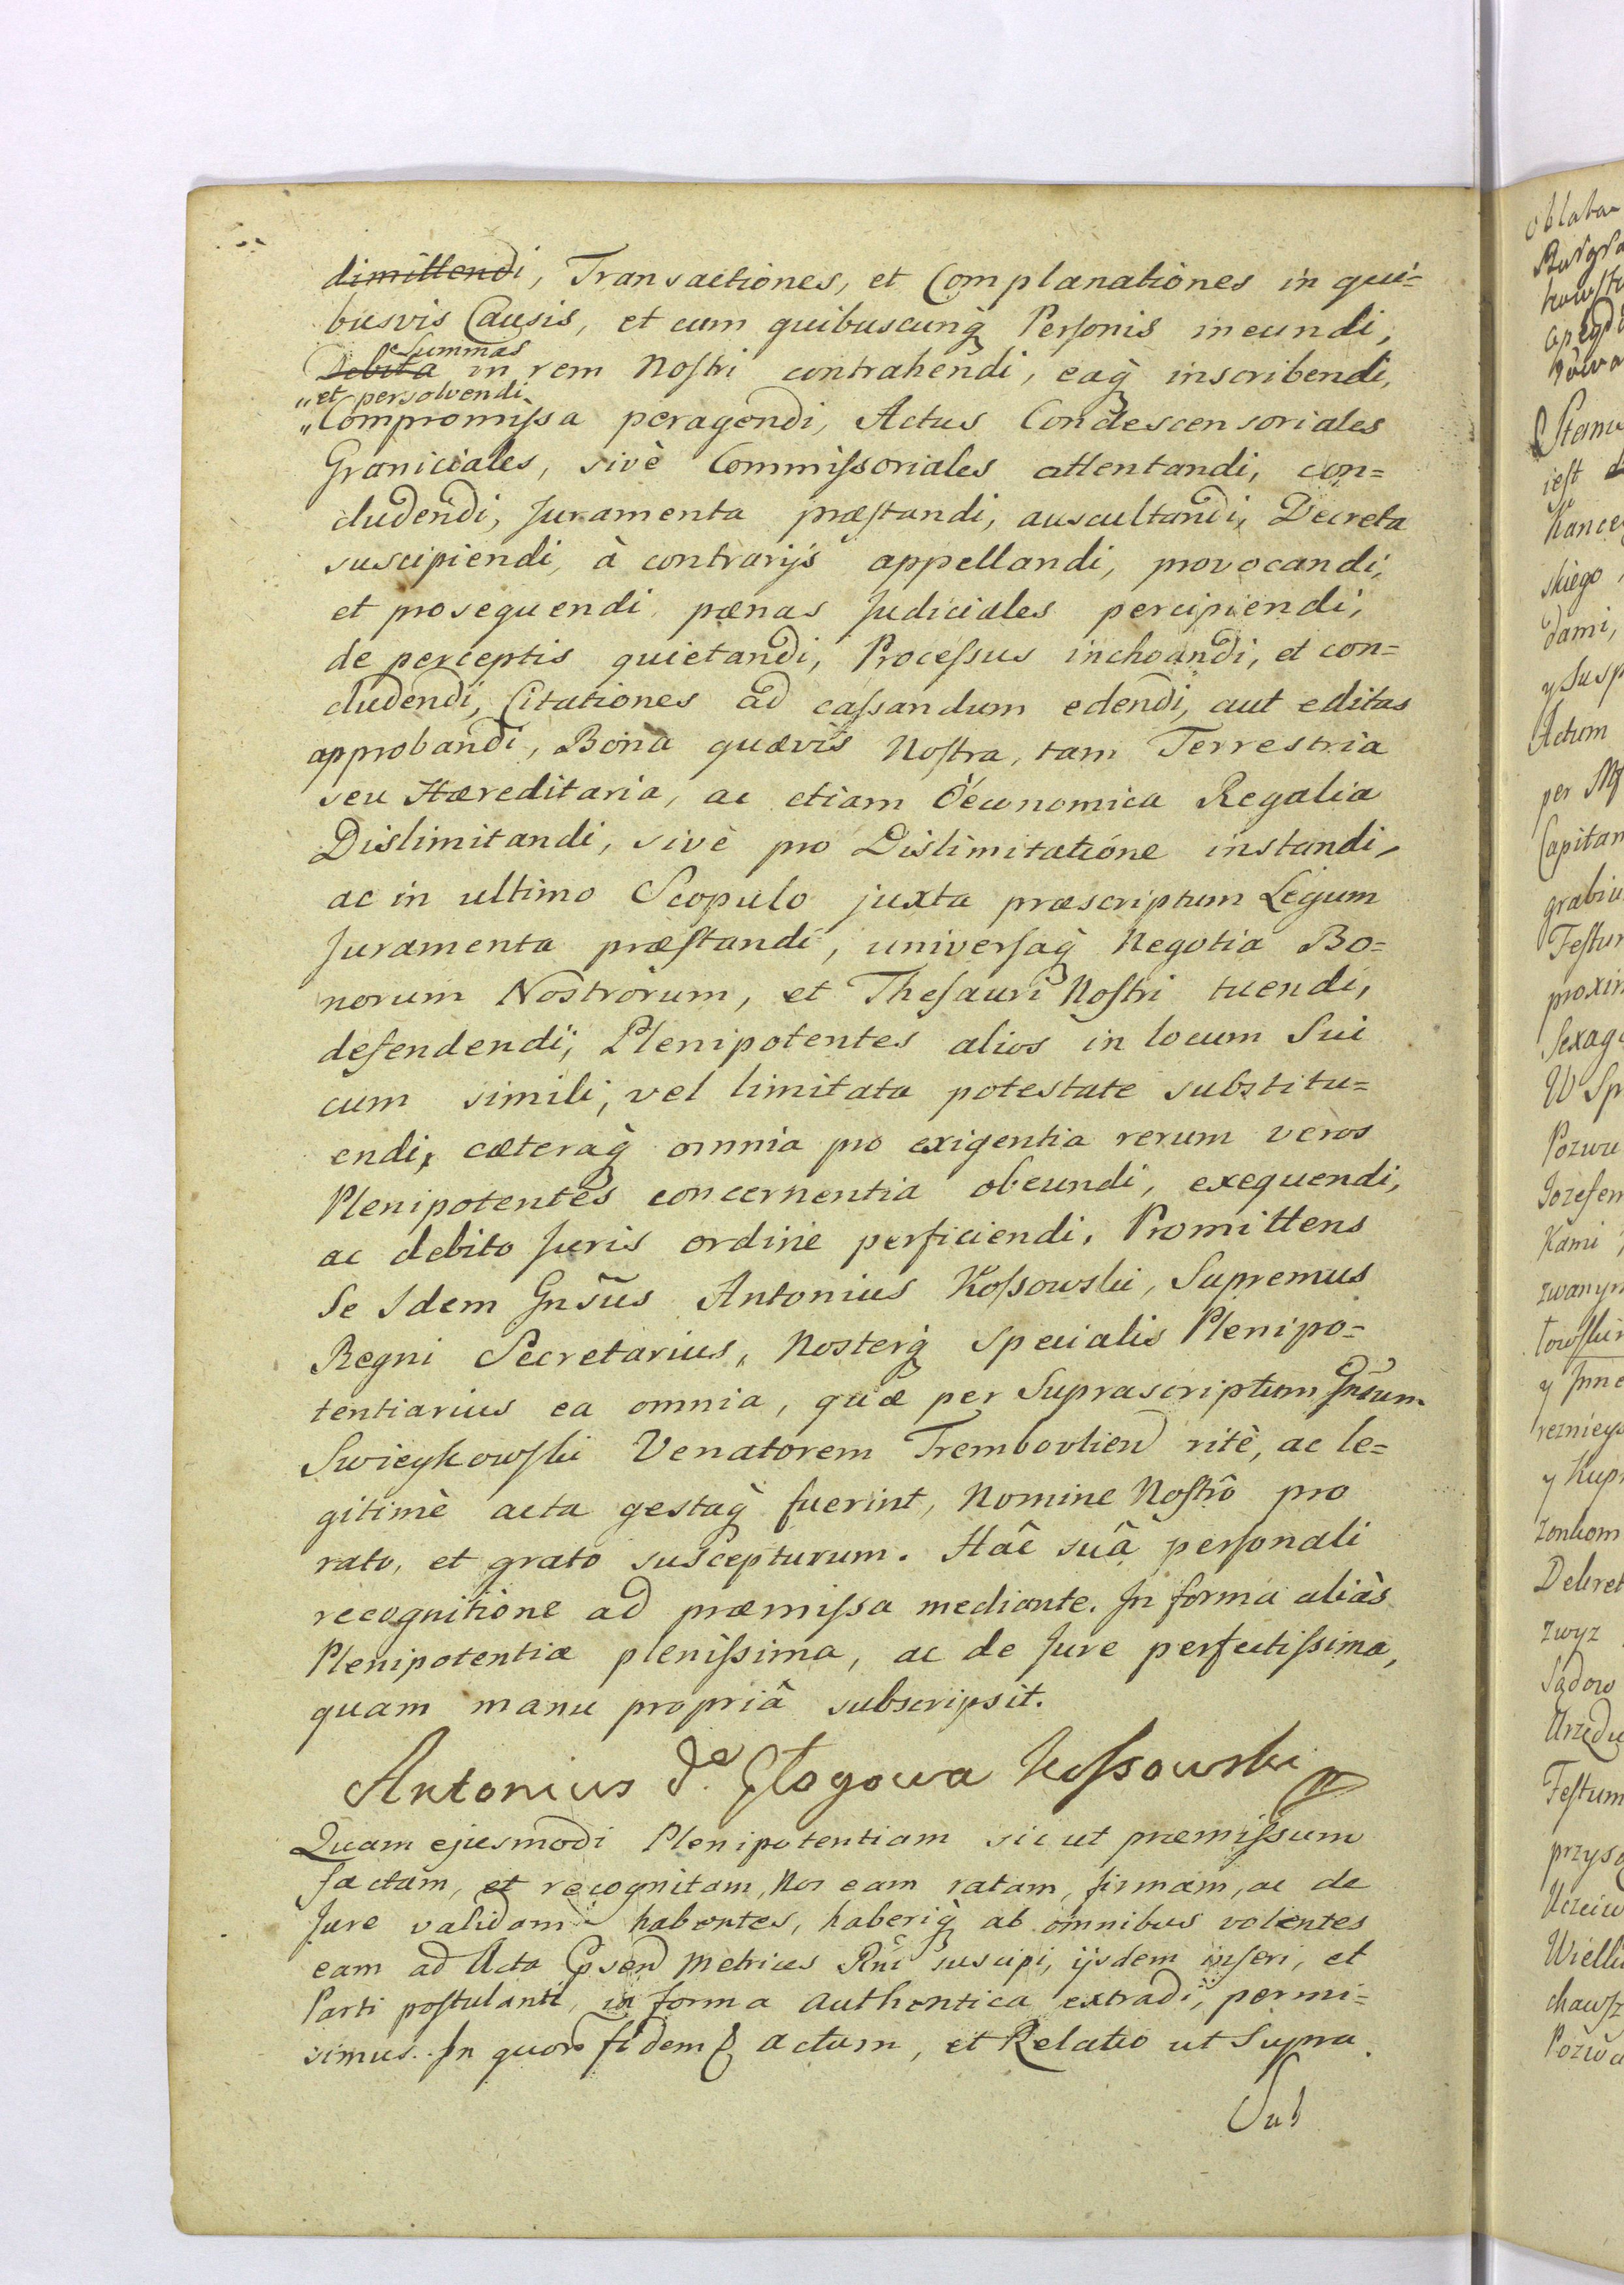 dimittendi, Transactiones, et Complanationes in qui=
busvis Causis, et cum quibuscunq̀ Personis ineundi,
Summas
Debita in rem Nostri contrahendi, eaq̀ inscribendi,
„et persolvendi
„Compromissa peragendi, Actus Condescensoriales
Graniciales, sivè Commissoriales attentandi, con=
cludendi, Juramenta præstandi, auscultandi, Decreta
suscipiendi, à contrarijs appellandi, provocandi,
et prosequendi pænas Judiciales percipiendi,
de perceptis quietandi, Processus inchoandi, et con=
cludendi, Citationes ad cassandum edendi, aut editas
approbandi, Bona quævis Nostra, tam Terrestria
seu Hæreditaria, ac etiam Oéconomica Regalia
Dislimitandi, sivè pro Dislimitatióne instandi,
ac in ultimo Scopulo juxta præscriptum Legum
Juramenta præstandi, universaq̀ Negotia Bo=
norum Nostrorum, et Thesauri Nostri tuendi,
defendendi, Plenipotentes alios in locum Sui
cum simili, vel limitata potestate substitu=
endi, cæteraq̀ omnia pro exigentia rerum veros
Plenipotentes concernentia obeundi, exequendi,
ac debito Juris ordine perficiendi. Promittens
Se Idem Gnsũs Antonius Kossowski, Supremus
Regni Secretarius, Nosterq̀ Specialis Plenipo=
tentiarius ea omnia, quæ per Suprascriptum Gnsum
Swieykowski Venatorem Trembovlien ritè, ac le=
gitimè acta gestaq̀ fuerint, Nomine Nostrô pro
rato, et grato suscepturum. Hâc suâ personali
recognitione ad præmissa mediante. In forma aliàs
Plenipotentiæ plenissima, ac de Jure perfectissima,
quam manu propriâ subscripsit.
Antonius de Głogowa Kossowski
Quam ejusmodi Plenipotentiam sicut præmissum
factam, et recognitam, Nos eam ratam, firmam, ac de
Jure validam habentes, haberiq̀ ab omnibus volentes
eam ad Acta Metrices Rñi suscipi, ijsdem inseri, et
Parti postulanti, in forma authentica extradi, permi=
simus. In quor fidem Actum, et Relatio ut Supra.
Sub